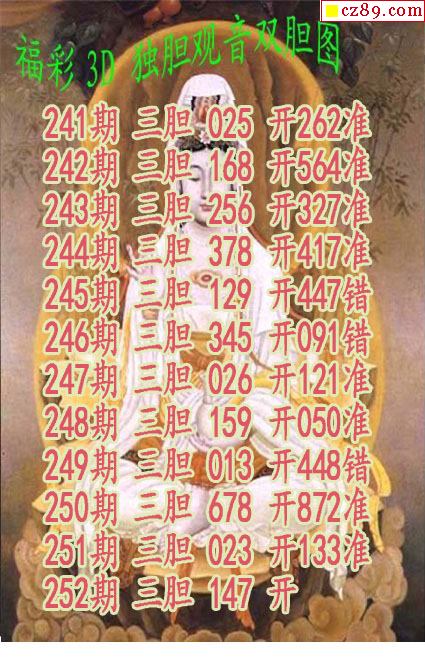 cz89.com
福彩 3D 独胆观音双胆图
241期 三胆 025 开262准
242期 三胆 168 开564准
243期 三胆 256 开327准
244期 三胆 378 开417准
245期 三胆 129 开447错
246期 三胆 345 开091错
247期 三胆 026 开121准
248期 三胆 159 开050准
249期 三胆 013 开448错
250期 三胆 678 开872准
251期 三胆 023 开133准
252期 三胆 147 开